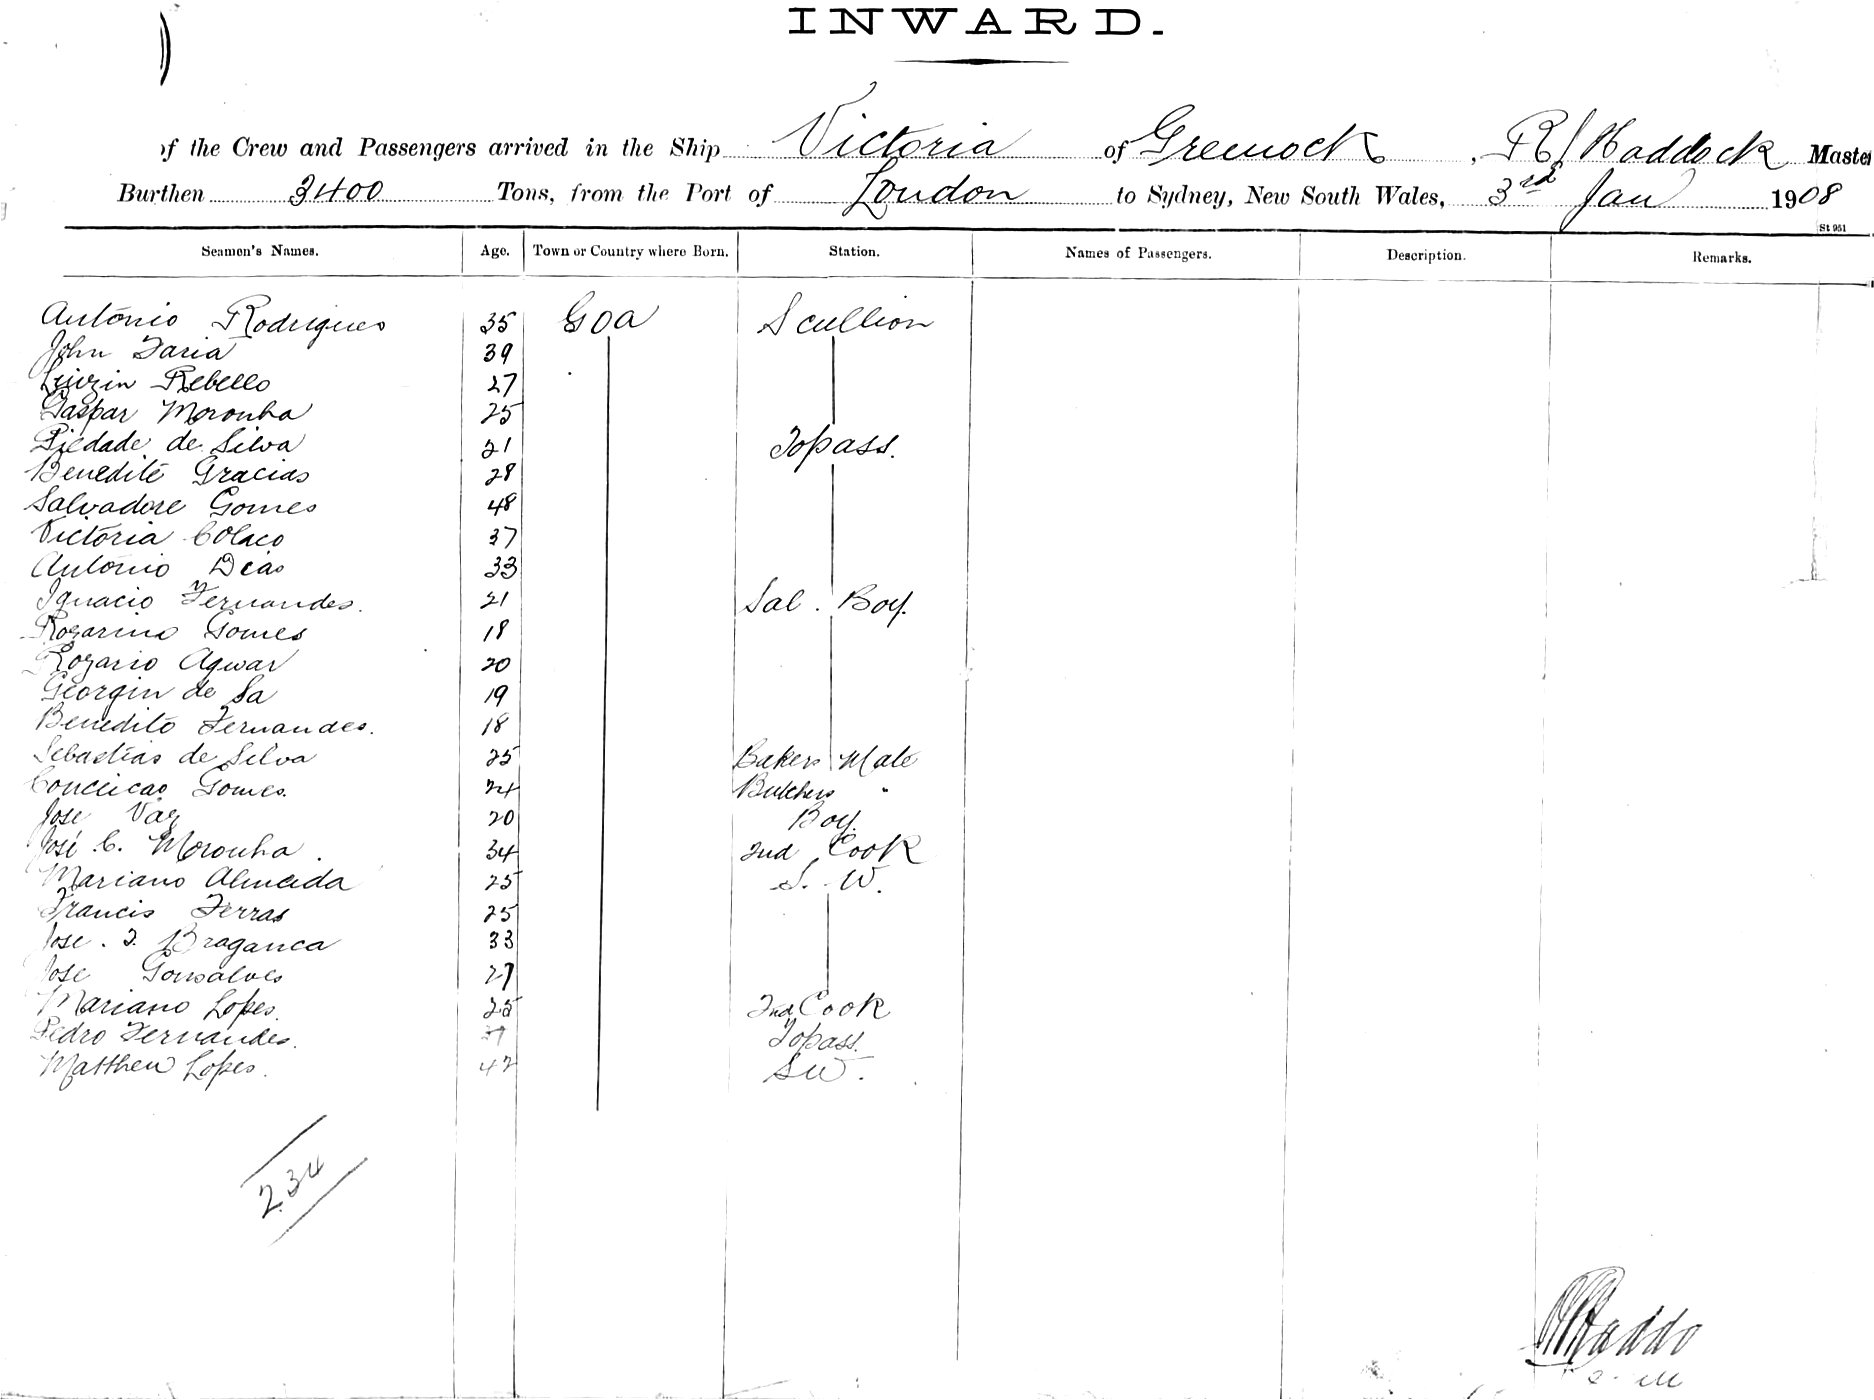 INWARD.
of the Crew and Passengers arrived in the Ship Victoria of Greenock, R Haddock Master
Burthen 3400 Tons, from the Port of London to Sydney, New South Wales, 3rd Jan 1908
St 951
Seamen's Names. Age. Town or Country where Born. Station. Names of Passengers. Description. Remarks.
Antonio Rodrigues 35 Goa Scullion
John Faria 39
Rebello 27
Gaspar Moronha 25
Piedade de Silva 21 Topass.
Benedite Gracias 28
Salvadore Gomes 48
Victoria Colaco 37
Antonio Dias 33
Ignacio Fernandes. 21 Sal. Boy.
Rozarino Gomes 18
Rozario Aguiar 20
Georgin de Sa 19
Benedito Fernandes. 18
Sebastias de Silva 25 Bakers Mate
Conceicao Gomes. 24 Butchers "
Jose Vaz 20 Boy.
José C. Moronha. 34 2nd Cook
Mariano Almeida 25 S. W.
Francis Ferras 25
Jose. F. Braganca 33
Jose Gonsalves 27
Mariano Lopes. 25 2nd Cook
Pedro Fernandes. Topass.
Matthew Lopes. 42 SW.
234